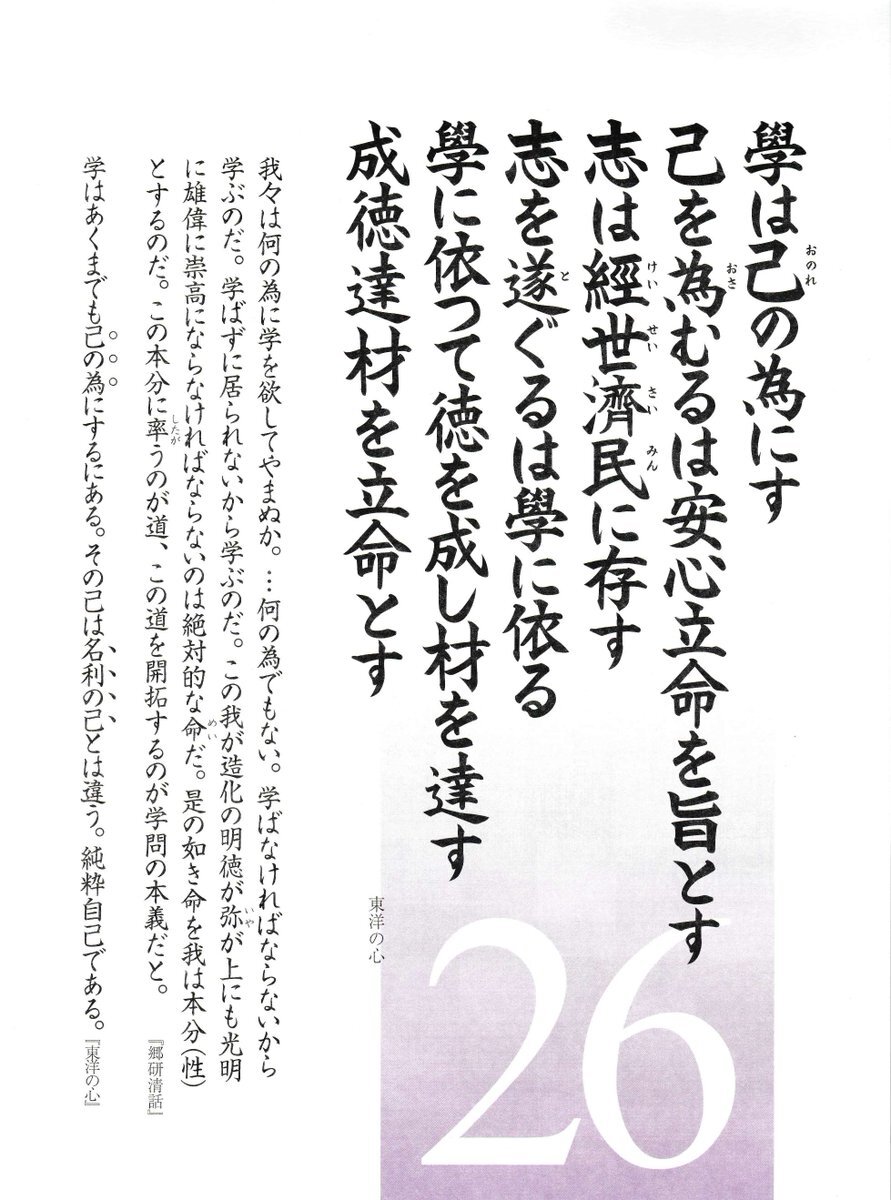 學は己の為にす
己を為むるは安心立命を旨とす
志は經世濟民に存す
志を遂ぐるは學に依る
學に依つて徳を成し材を達す
成徳達材を立命とす
東洋の心
26
我々は何の為に学を欲してやまぬか。…何の為でもない。学ばなければならないから
学ぶのだ。学ばずに居られないから学ぶのだ。この我が造化の明徳が弥が上にも光明
に雄偉に崇高にならなければならないのは絶対的な命だ。是の如き命を我は本分(性)
とするのだ。この本分に率うのが道、この道を開拓するのが学問の本義だと。
『郷研清話』
学はあくまでも己の為にするにある。その己は名利の己とは違う。純粋自己である。
『東洋の心』